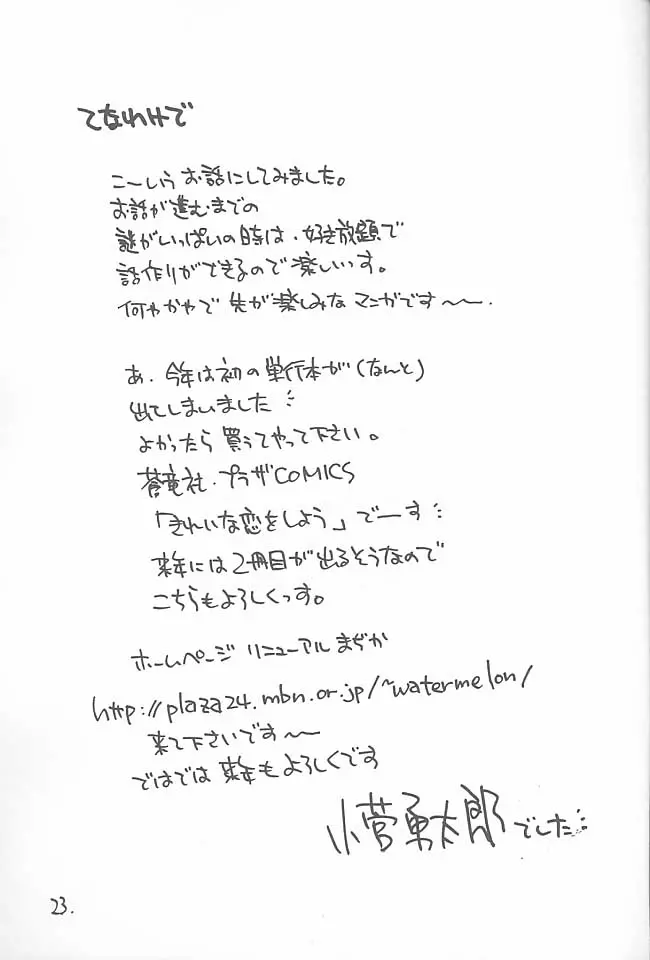 てなわけで
こーいうお話にしてみました。
お話が進むまでの
謎がいっぱいの時は、好き放題で
話作りができるので楽しいっす。
何やかやで先が楽しみなマンガです〜〜.
あ、今年は初の単行本が(なんと)
出てしまいました…
よかったら買ってやって下さい。
蒼竜社・プラザCOMICS
「きれいな恋をしよう」でーす…
来年には2冊目が出るそうなので
こちらもよろしくっす。
ホームページ リニューアルまぢか
http://plaza24.mbn.or.jp/~watermelon/
来て下さいです〜〜
ではでは来年もよろしくです
小菅勇太郎でした…
23.